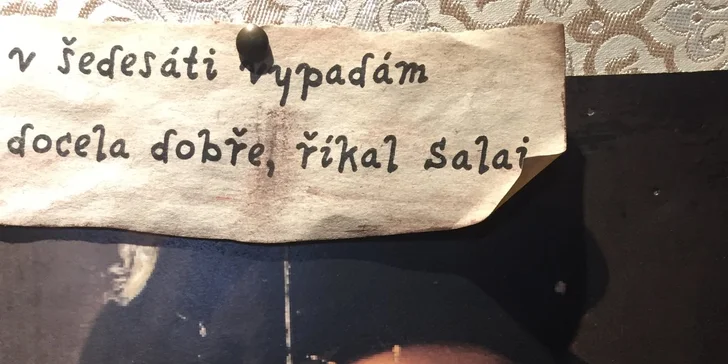 v šedesáti vypadám
docela dobře, říkal Salai